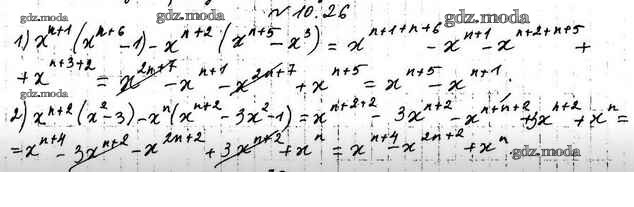 gdz.moda № 10.26 gdz.moda
1) x^{n+1}(x^{n+6} - 1) - x^{n+2}(x^{n+5} - x^3) = x^{n+1+n+6} - x^{n+1} - x^{n+2+n+5} +
+ x^{n+3+2} = x^{2n+7} - x^{n+1} - x^{2n+7} + x^{n+5} = x^{n+5} - x^{n+1}.
gdz.moda
2) x^{n+2}(x^2 - 3) - x^n(x^{n+2} - 3x^2 - 1) = x^{n+2+2} - 3x^{n+2} - x^{n+n+2} + 3x^{n+2} + x^n =
= x^{n+4} - 3x^{n+2} - x^{2n+2} + 3x^{n+2} + x^n = x^{n+4} - x^{2n+2} + x^n.
gdz.moda gdz.moda